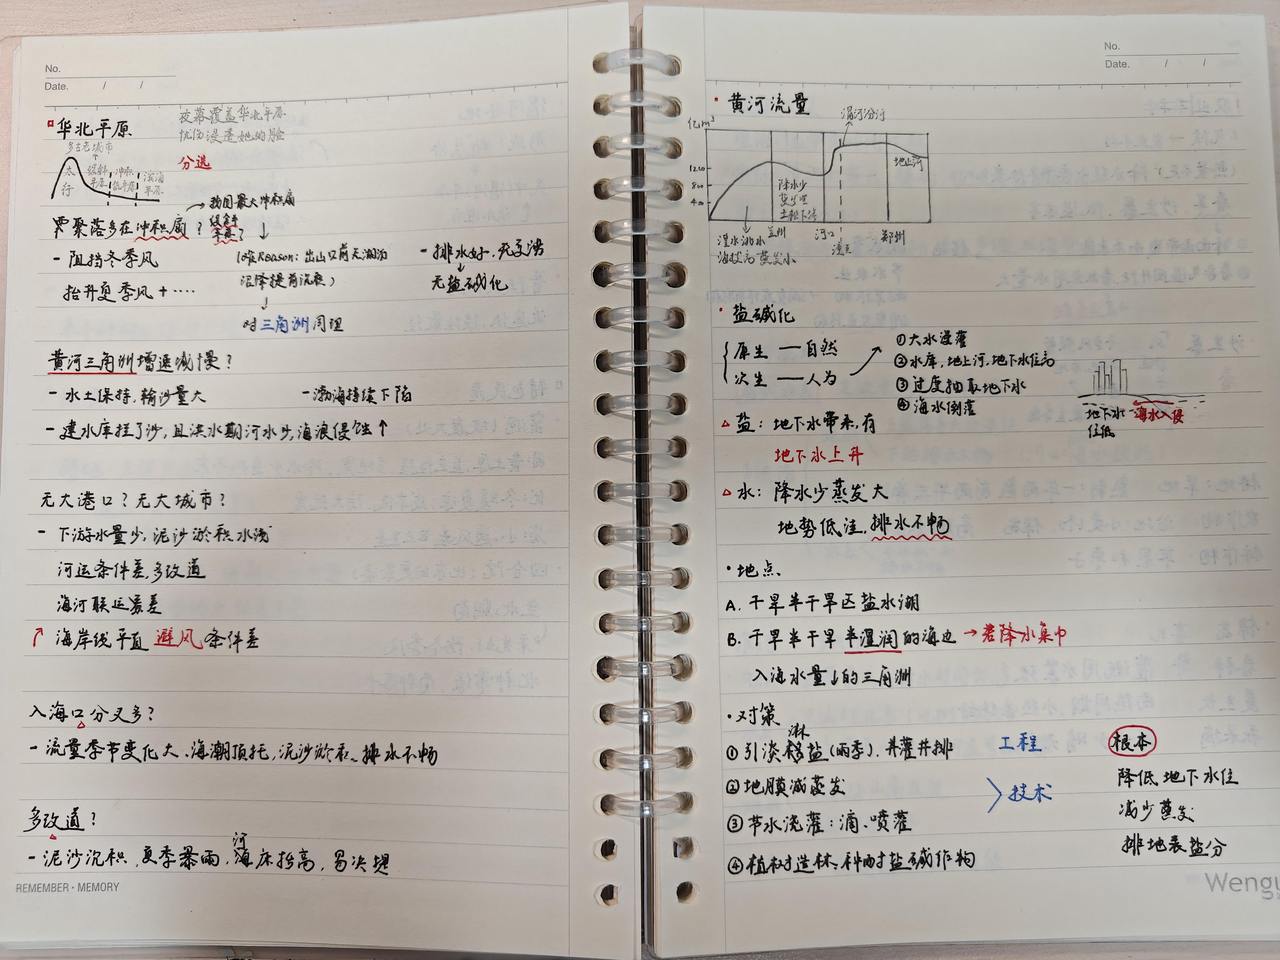 No.
Date. / /
华北平原
夜幕覆盖华北平原
忧伤浸透她的脸
多古老城市
分选
太行
冲积
平原
滨海平原
→我国最大冲积扇
聚落多在冲积扇?
- 阻挡冬季风
抬升夏季风+····
Reason: 出山口前无湖泊
泥降提前沉衰)
对三角洲同理
- 排水好
无盐碱化
黄河三角洲增速减慢?
- 水土保持,输沙量大
- 渤海持续下陷
- 建水库拦了沙,且洪水期河水少,海浪侵蚀↑
无大港口?无大城市?
- 下游水量少,泥沙淤积水浅
河运条件差,多改道
海河联运差
↗ 海岸线平直 避风条件差
入海口分叉多?
- 流量季节变化大、海潮顶托,泥沙淤积、排水不畅
多改道?
- 泥沙沉积,夏季暴雨,海床抬高,易决堤
河
REMEMBER · MEMORY
No.
Date. / /
· 黄河流量
渭河汾河
亿m³
1200
800
400
地上河
降水少
蒸发强
土壤下渗
兰州
河口
潼关
郑州
湟水洮水
海拔高蒸发小
· 盐碱化
原生 — 自然
次生 — 人为
①大水漫灌
②水库,地上河,地下水位高
③过度抽取地下水
④海水倒灌
地下水位低
海水入侵
△ 盐: 地下水带来,有
地下水上升
△ 水: 降水少蒸发大
地势低洼,排水不畅
· 地点
A. 干旱半干旱区盐水湖
B. 干旱半干旱半湿润的海边 →若降水集中
入海水量↓的三角洲
· 对策
淋
①引淡移盐(雨季),井灌井排
工程
根本
②地膜减蒸发
技术
降低地下水位
③节水浇灌:滴、喷灌
减少蒸发
④植树造林、种耐盐碱作物
排地表盐分
Weng